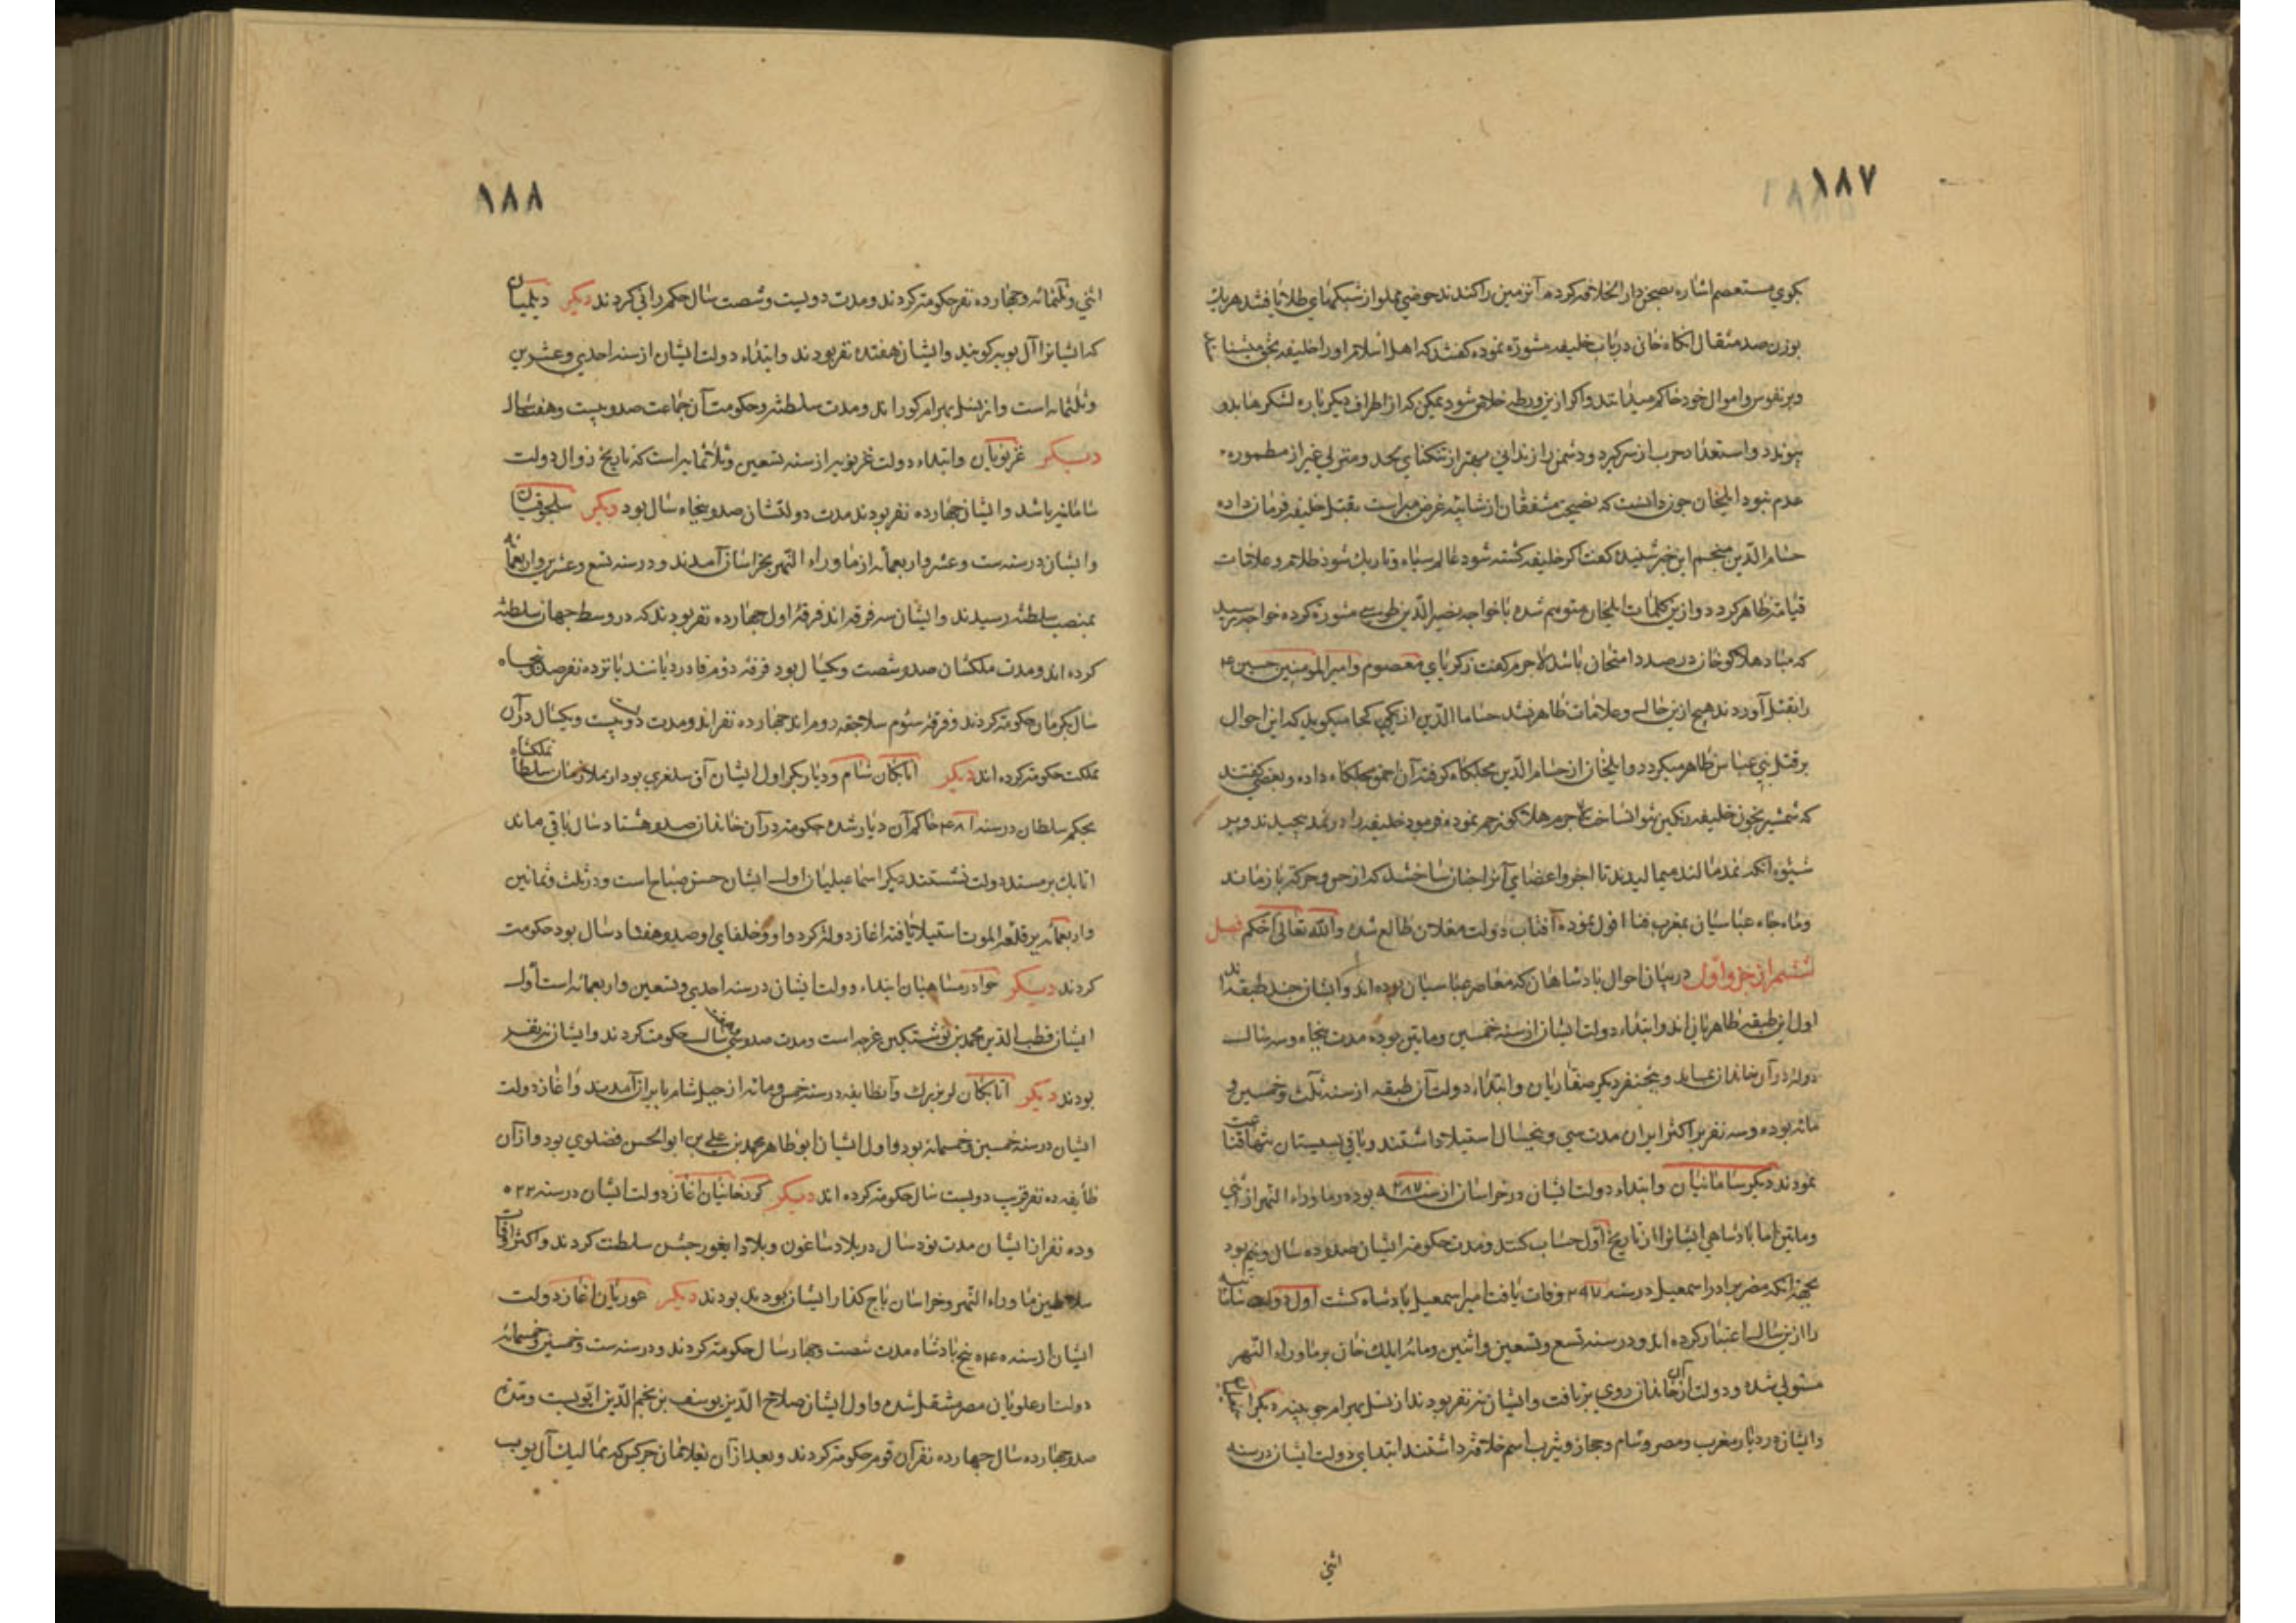 ١٨٧
بكوي مستعصم اشاره بصحن دار الخلافه كرد مر آنزمين را كندند حوضي مملو از شبكهاي طلا يافتند هر يك
بوزن صد مثقال انكاه خان در باب خليفه مشورة نموده كفتند كه اهل اسلام او را خليفه بحق ميشنا
وبر نفوس واموال خود حاكم ميدانند واكر ازين ورطه خلاص شود يمكن كه از اطراف ديكر باره لشكرها بدو
پيوندد واستعداد حرب از سر كيرد ودشمن را زنداني بهتر از تنكناي لحد ومنزلي غير از مطموره
عدم نبود ايلخان چون دانست كه نصيحت مشفقان از شائبه غرض مبراست بقتل خليفه فرمان داده
حسام الدين منجم اين خبر شنيده كفت اكر خليفه كشته شود عالم سياه وتاريك شود ظلام وعلامات
قيامة ظاهر كردد وازين كلمات ايلخان متوهم شده با خواجه نصير الدين طوسي مشورة كرده خواجه ترسيد
كه مبادا هلاكو خان در صدد امتحان باشد لاجرم كفت زكرياي معصوم وامير المومنين حسين ٤
را بقتل آوردند هيچ ازين حال وعلامات ظاهر نشد حسام الدين از كجا ميكويد كه اين احوال
بر قتل بني عباس ظاهر ميكردد وايلخان از حسام الدين مچلكاه كرفته آن احمق مچلكاه داده وبعضي كفتند
كه شمشير بخون خليفه رنكين نتوان ساخت لاجرم هلاكو رحم نموده فرمود خليفه را در نمد پيچيدند وبر
شيوه انكه نمد مالند ميماليدند تا اجزو اعضاي آنرا چنان ساختند كه از حس وحركة باز ماند
وماه جاه عباسيان بمغرب فنا افول نموده آفتاب دولت مغلان طالع شده والله تعالى احكم فصل
ششم از جزو اول در بيان احوال پادشاهان كه معاصر عباسيان بوده اند وايشان چند طبقه اند
اول ازين طبقه طاهريان اند وابتداء دولت ايشان از سنه خمسين ومايتين بوده مدت پنجاه وسه سال
دولة در آن خاندان بماند وپنجنفر ديكر صفاريان وابتداء دولت آن طبقه از سنه ثلث وخمسين و
مائه بوده وسه نفر بر اكثر ايران مدت سي وپنجسال استيلا داشتند وباقي بسيستان تنها قناعت
نمودند ديكر سامانيان وابتداء دولت ايشان در خراسان از سنه ٢٨٧ بوده در ماوراء النهر از اثني
ومايتين اما پادشاهي ايشانرا از تاريخ اول حساب كنند ومدت حكومة ايشان صد وده سال ونيم بود
بجهة انكه مضر برادر اسمعيل در سنه ٢٩٧ وفات يافت امير اسمعيل پادشاه كشت اول دولت سامانيه
را ازين سال اعتبار كرده اند ودر سنه تسع وتسعين واثنين ومائه ايلك خان بر ماوراء النهر
مستولي شده ودولت از آن خاندان روي بر تافت وايشان نه نفر بودند از نسل بهرام چوبينه ديكر
وايشان در ديار مغرب ومصر وشام وحجاز ويثرب اسم خلافة داشتند ابتداي دولت ايشان در سنه
اثني
١٨٨
اثني وثلثمائه وچهارده نفر حكومة كردند ومدت دويست وشصت سال حكمراني كردند ديكر ديلميان
كه ايشانرا آل بويه كويند وايشان هفتده نفر بودند وابتداء دولت ايشان از سنه احدي وعشرين
وثلثمائه است واز نسل بهرام كور اند ومدت سلطنة وحكومت آن جماعت صد وبيست وهفت سال
ديكر غزنويان وابتداء دولت غزنويه از سنه تسعين وثلاثمايه است كه تاريخ زوال دولت
سامانيه باشد وايشان چهارده نفر بودند مدت دولتشان صد وپنجاه سال بود ديكر سلجوقيان
وايشان در سنه ست وعشر واربعمائه از ماوراء النهر بخراسان آمدند ودر سنه تسع وعشرين واربعمائه
بمنصب سلطنة رسيدند وايشان سه فرقه اند فرقه اول چهارده نفر بودند كه در وسط جهان سلطنة
كرده اند ومدت ملكشان صد وشصت ويكسال بود فرقه دوم قاورديانند يازده نفر صد وپنجاه
سال بكرمان حكومة كردند وفرقه سئوم سلاجقه روم اند چهارده نفر اند ومدت دويست ويكسال در آن
مملكت حكومة كرده اند ديكر اتابكان شام وديار بكر اول ايشان آق سنغري بود از ملازمان سلطان ملكشاه
بحكم سلطان در سنه ٤٨١ حاكم آن ديار شده حكومة در آن خاندان صد وهشتاد سال باقي ماند
اتابك بر مسند دولت نشستند ديكر اسماعيليان اول ايشان حسن صباح است ودر ثلث وثمانين
واربعمائه بر قلعه الموت استيلا يافته اغاز دولة كرد واو وخلفاي او صد وهفتاد سال بود حكومت
كردند ديكر خوارزمشاهيان ابتداء دولت ايشان در سنه احدي وتسعين واربعمائه است اول
ايشان قطب الدين محمد بن نوشتكين غرجه است ومدت صد وسي سال حكومت كردند وايشان نه نفر
بودند ديكر اتابكان لر بزرك وآن طايفه در سنه خمس ومائه از جبل شام بايران آمدند واغاز دولت
ايشان در سنه خمسين وخمسمائه بود واول ايشان ابو طاهر محمد بن علي بن ابو الحسن فضلوي بود واز آن
طايفه ده نفر قريب دويست سال حكومة كرده اند ديكر كورخانيان اغاز دولت ايشان در سنه ٥٢٢
وده نفر از ايشان مدت نود سال در بلاد ساغون وبلاد ايغور جشن سلطنت كردند واكثر اوقات
سلاطين ماوراء النهر وخراسان باج كذار ايشان بودند بودند ديكر غوريان اغاز دولت
ايشان از سنه ٥٤٥ پنج پادشاه مدت شصت وچهار سال حكومة كردند ودر سنه ست وخمسين وخمسمائه
دولت از علويان مصر منتقل شده واول ايشان صلاح الدين يوسف بن نجم الدين ايوبست ومدت
صد وچهارده سال چهارده نفر آن قوم حكومة كردند وبعد از آن بغلامان چركس كه مماليك آل ايوب